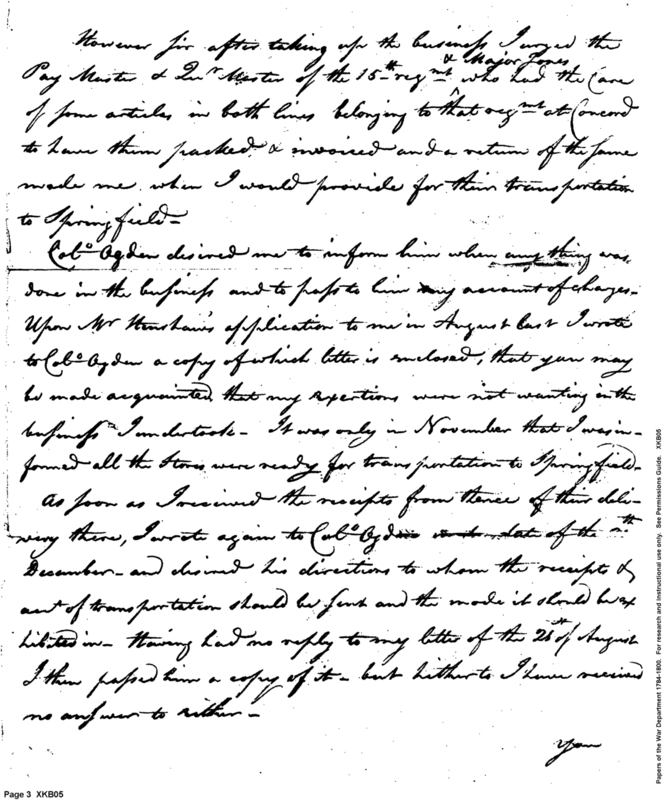 However sir after taking up the business I urged the
& Major Jones
Pay Master & Qur Master of the 15th regmt ^ who had the Care
of some articles in both lines belonging to that regmt at Concord
to have them packed & invoiced and a return of the same
made me, when I would provide for their transportation
to Springfield-
Colo Ogden desired me to inform him when any thing was
done in the business and to pass to him my account of charges-
Upon Mr Henshaw's application to me in August last I wrote
to Colo Ogden a copy of which letter is enclosed, that you may
be made acquainted that my exertions were not wanting in the
business I undertook- It was only in November that I was in-
formed all the Stores were ready for transportation to Springfield-
As soon as I received the receipts from thence of their deli-
very there, I wrote again to Colo Ogden of the
December- and desired his directions to whom the receipts &
acct of transportation should be sent and the mode it should be ex
hibited in- Having had no reply to my letter of the 26th of August
I then passed him a copy of it- but hitherto I have received
no answer to either-
You
Page 3 XKB05
Papers of the War Department 1784-1800. For research and instructional use only. See Permissions Guide. XKB05